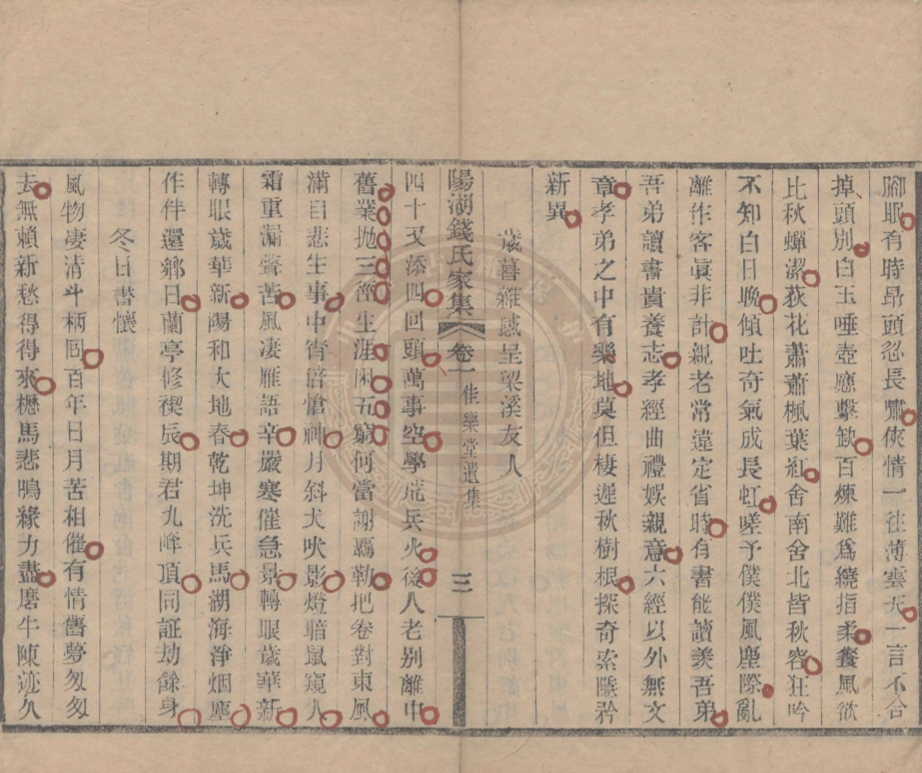 腳眠有時昻頭忽長嘯俠情一往薄雲天一言不合
掉頭別白玉唾壺應擊缺百煉難爲繞指柔蠶風欲
比秋蟬潔荻花蕭蕭楓葉紅舍南舍北皆秋容狂吟
不知白日晩傾吐奇氣成長虹嗟予僕僕風塵際亂
離作客眞非計親老常違定省時有書能讀羡吾弟
吾弟讀書貴養志孝經曲禮娛親意六經以外無文
章孝弟之中有樂地莫但棲遲秋樹根探奇索隱矜
新異
歲暮雜感呈梁溪友人
陽湖錢氏家集 卷一 佳樂堂遺集 三
四十又添四回頭萬事空學荒兵火後人老别離中
舊業抛三徑生涯困五窮何當謝羈勒把卷對東風
滿目悲生事中宵倍愴神月斜犬吠影燈暗鼠窺人
霜重漏聲苦風凄雁語辛嚴寒催急景轉眼歲華新
轉眼歲華新陽和大地春乾坤洗兵馬湖海淨烟塵
作伴還鄉日蘭亭修禊辰期君九峰頂同証劫餘身
冬日書懷
風物凄清斗柄囘百年日月苦相催有情舊夢匆匆
去無賴新愁得得來櫪馬悲鳴緣力盡磨牛陳迹久